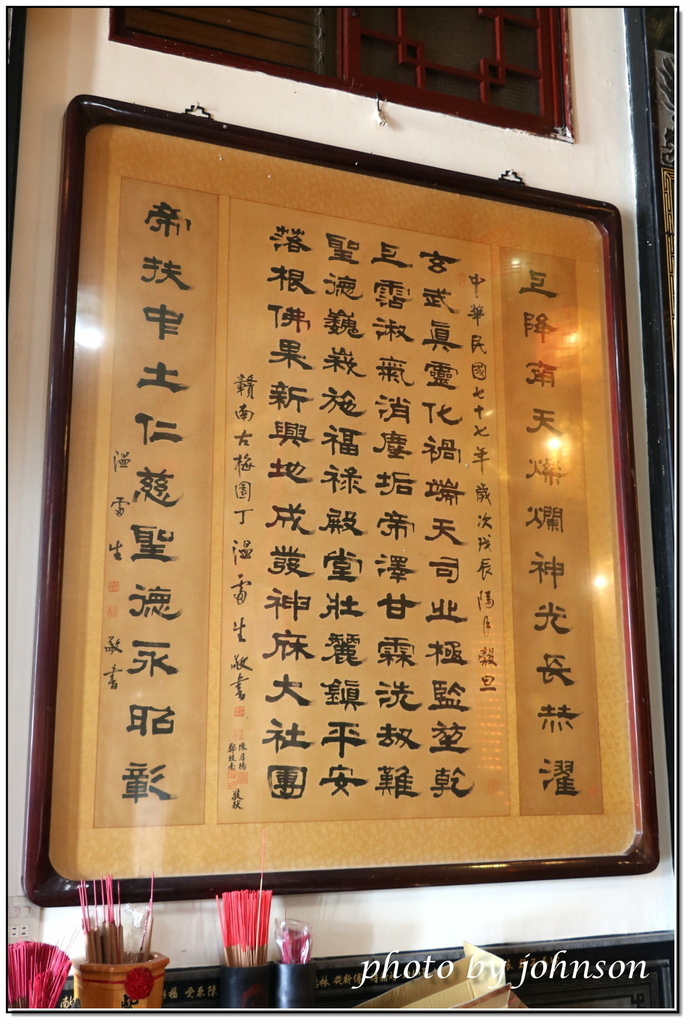 巨降南天燦爛神光長赫濯
中華民國七十七年歲次戊辰陽月穀旦
玄武真靈化禍端天司北極監堃乾
巨靈淑氣消塵垢帝澤甘霖洗劫難
聖德巍峩施福祿殿堂壯麗鎮平安
落根佛果新興地成發神庥大社團
贛南古梅園丁溫雷生敬書
帝扶中土仁慈聖德永昭彰
溫雷生敬書
photo by johnson